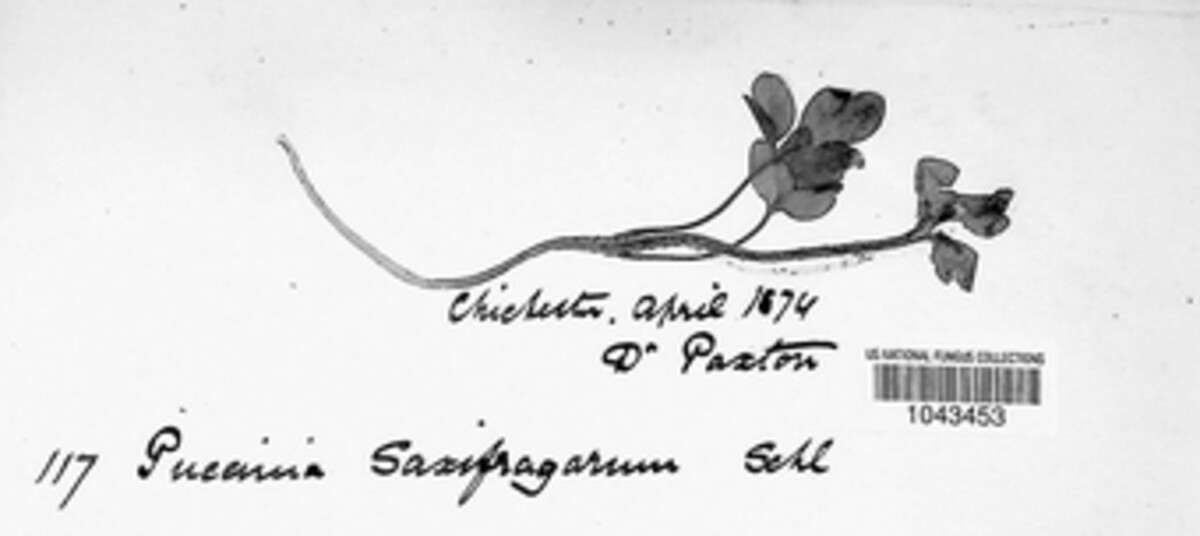 Chichester, April 1874
Dr Paxton
US NATIONAL FUNGUS COLLECTIONS
1043453
117 Puccinia Saxifragarum Schl